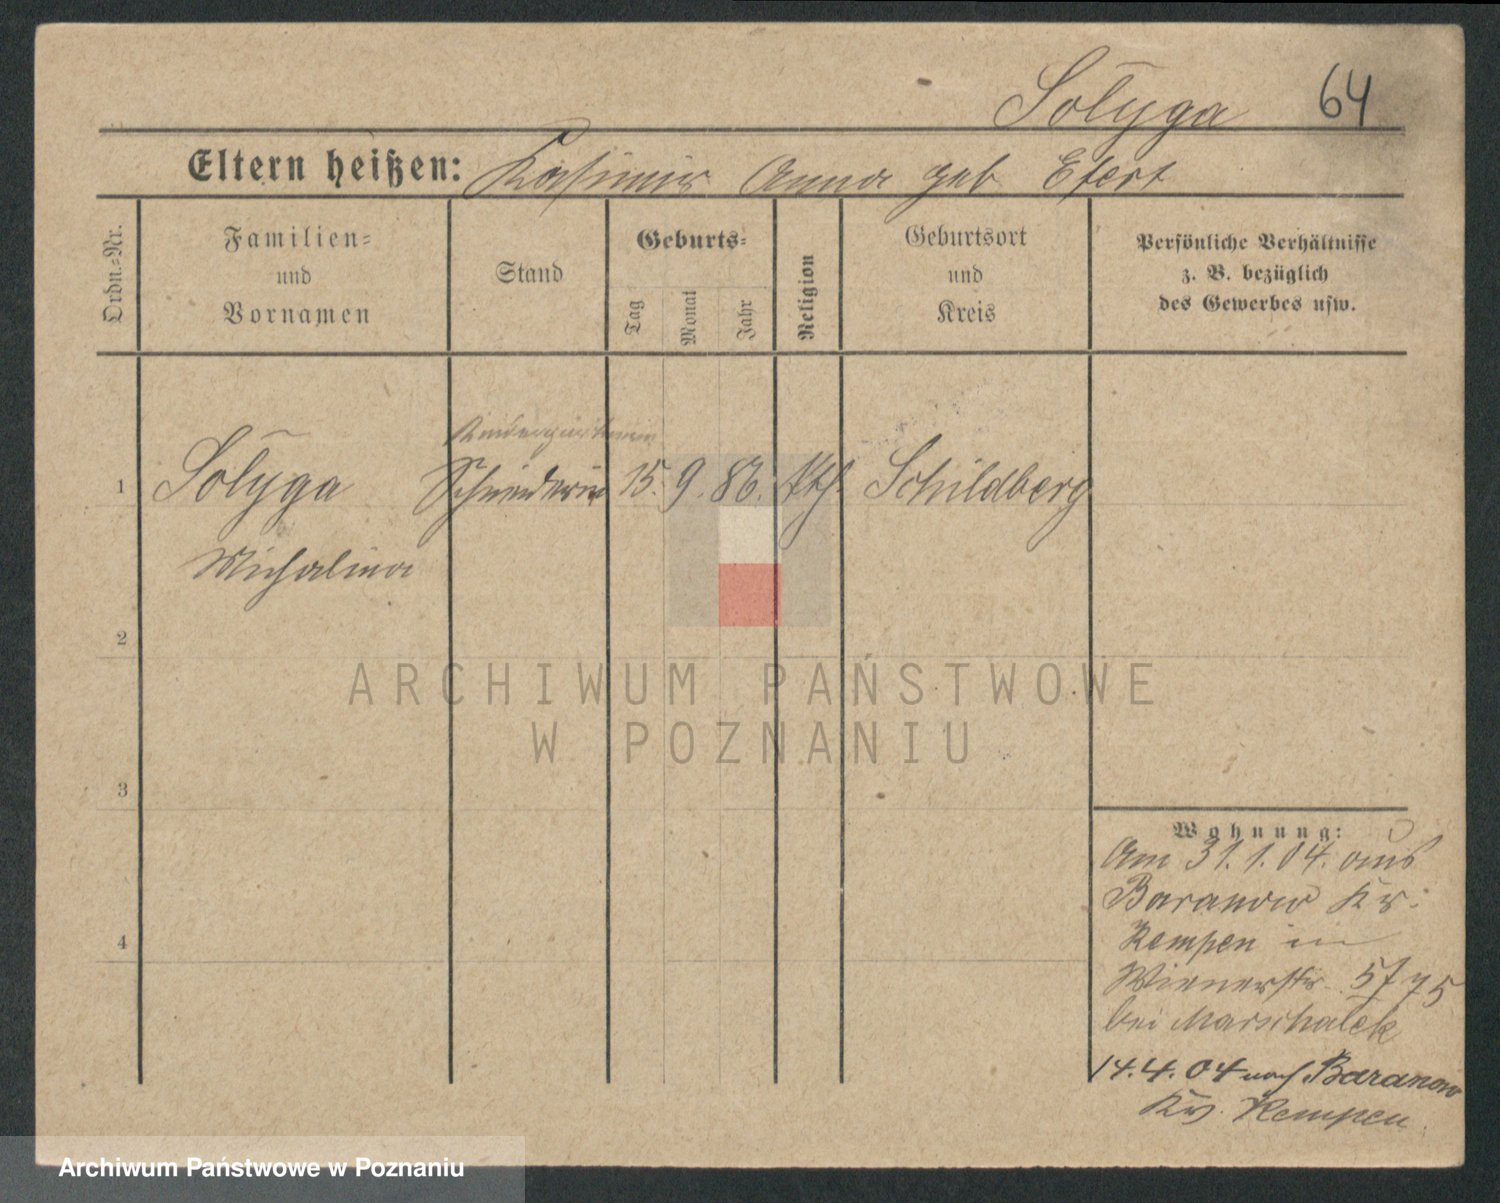 Solyga 64
Eltern heißen: Kasimir Anna geb Efert
Ordn.=Nr.
Familien=
und
Vornamen
Stand
Geburts=
Tag
Monat
Jahr
Religion
Geburtsort
und
Kreis
Persönliche Verhältnisse
z. B. bezüglich
des Gewerbes usw.
1 Solyga Schneiderin 15. 9. 86. kth. Schildberg
Michalina
2
3
4
Wohnung:
Am 31.1.04. aus
Baranow Kr.
Kempen in
Wienerstr. 5
bei Marschalek
14.4.04 nach Baranow
Kr. Kempen
ARCHIWUM PAŃSTWOWE
W POZNANIU
Archiwum Państwowe w Poznaniu